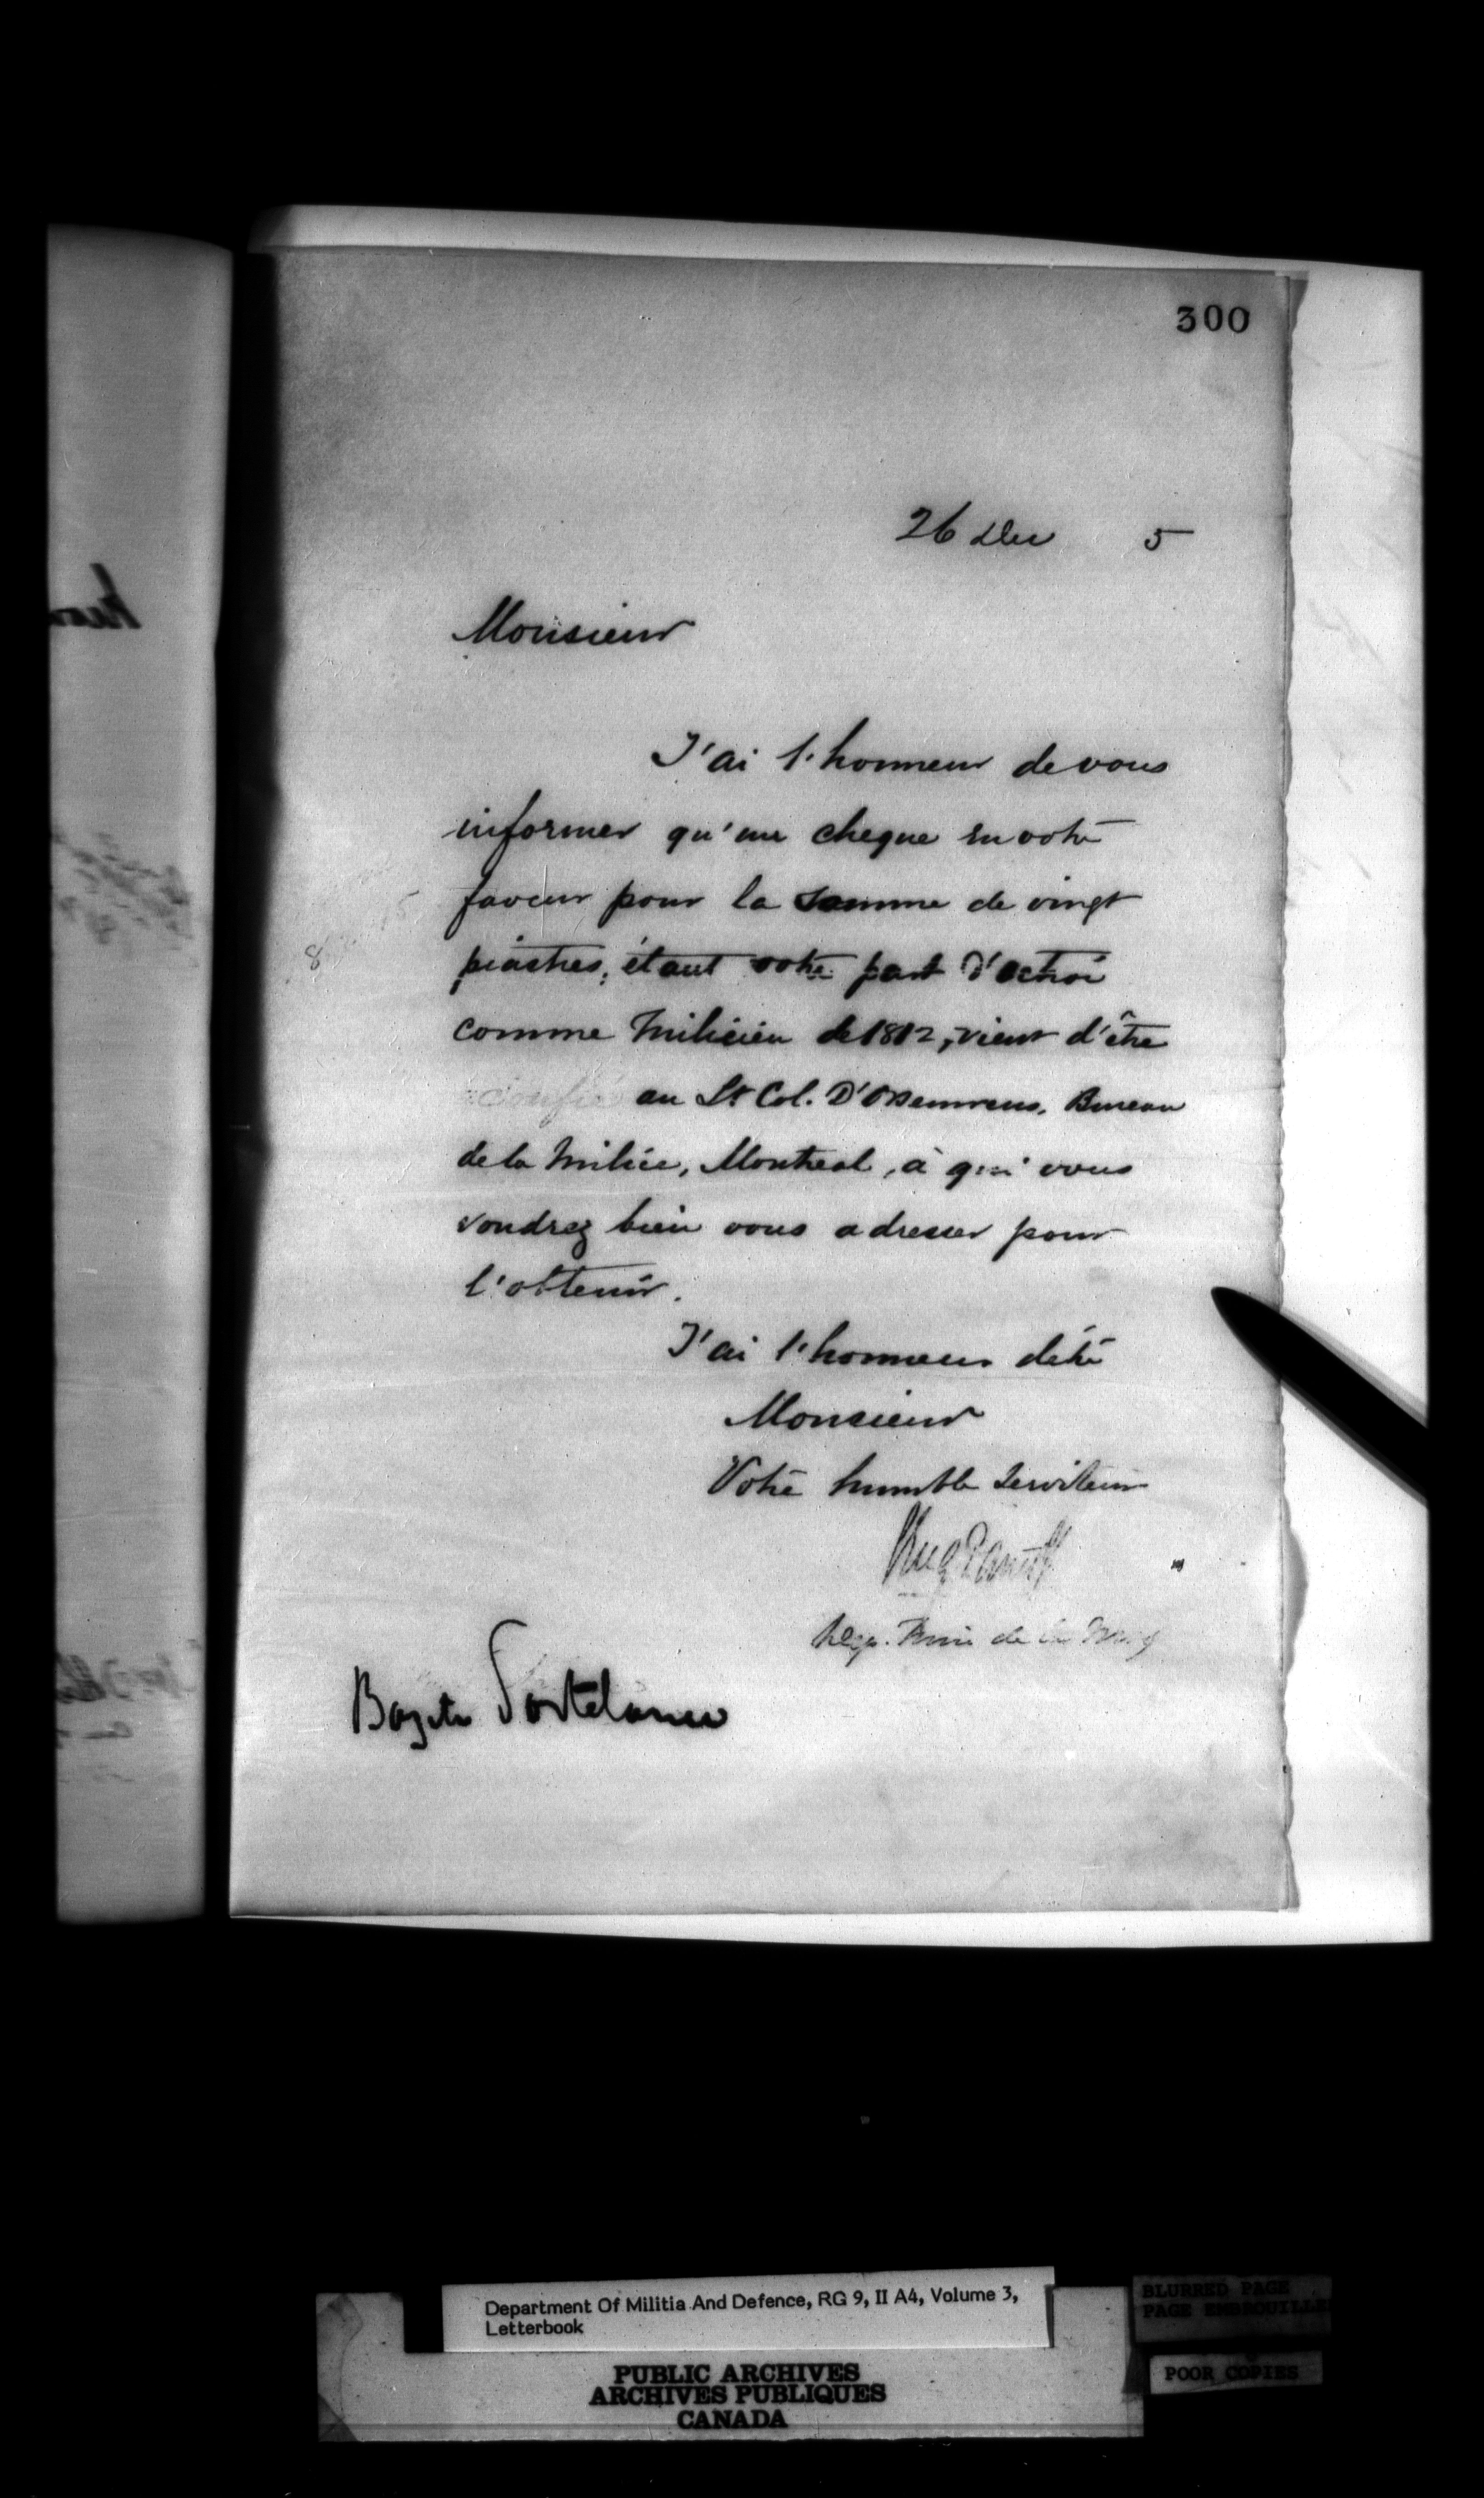 300
26 Dec 5
Monsieur
J'ai l'honneur de vous
informer qu'un cheque en votre
faveur pour la somme de vingt
piastres, étant votre part d'octroi
comme Milicien de 1812, vient d'être
confié au Lt Col. D'Orsennens, Bureau
de la Milice, Montreal, à qui vous
voudrez bien vous adresser pour
l'obtenir.
J'ai l'honneur d'être
Monsieur
Votre humble Serviteur
Panet
de la
Portelance
Department Of Militia And Defence, RG 9, II A4, Volume 3,
Letterbook
BLURRED PAGE
PAGE EMBROUILLEE
POOR COPIES
PUBLIC ARCHIVES
ARCHIVES PUBLIQUES
CANADA